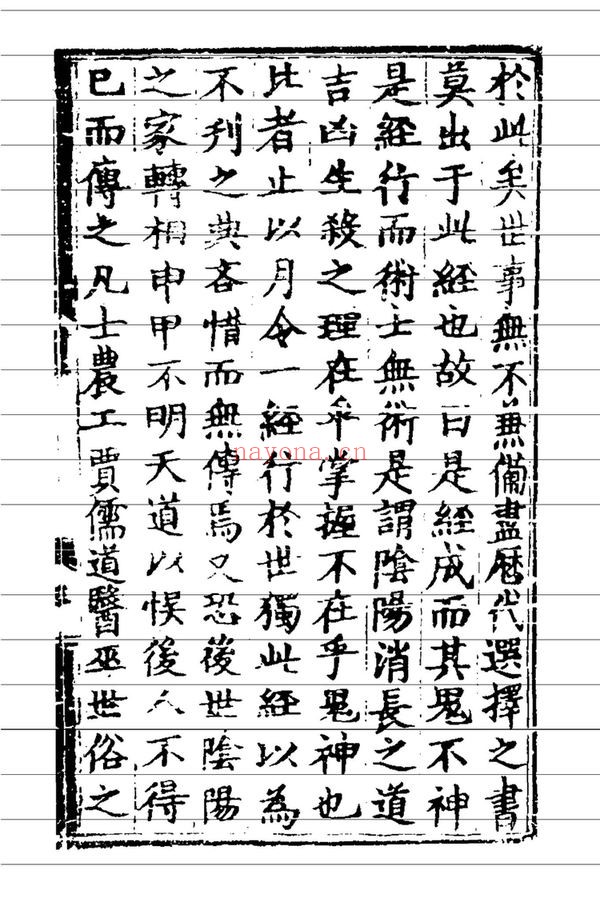 於此矣世事無不兼備盡曆代選擇之書
莫出于此経也故曰是経成而其鬼不神
是経行而術士無術是謂陰陽消長之道
吉凶生殺之理在乎掌握不在乎鬼神也
比者止以月令一経行於世獨此経以為
不刋之典吝惜而無傳焉又恐後世陰陽
之家轉相申甲不明天道以悮後人不得
已而傳之凡士農工賈儒道醫巫世俗之
nayona.cn